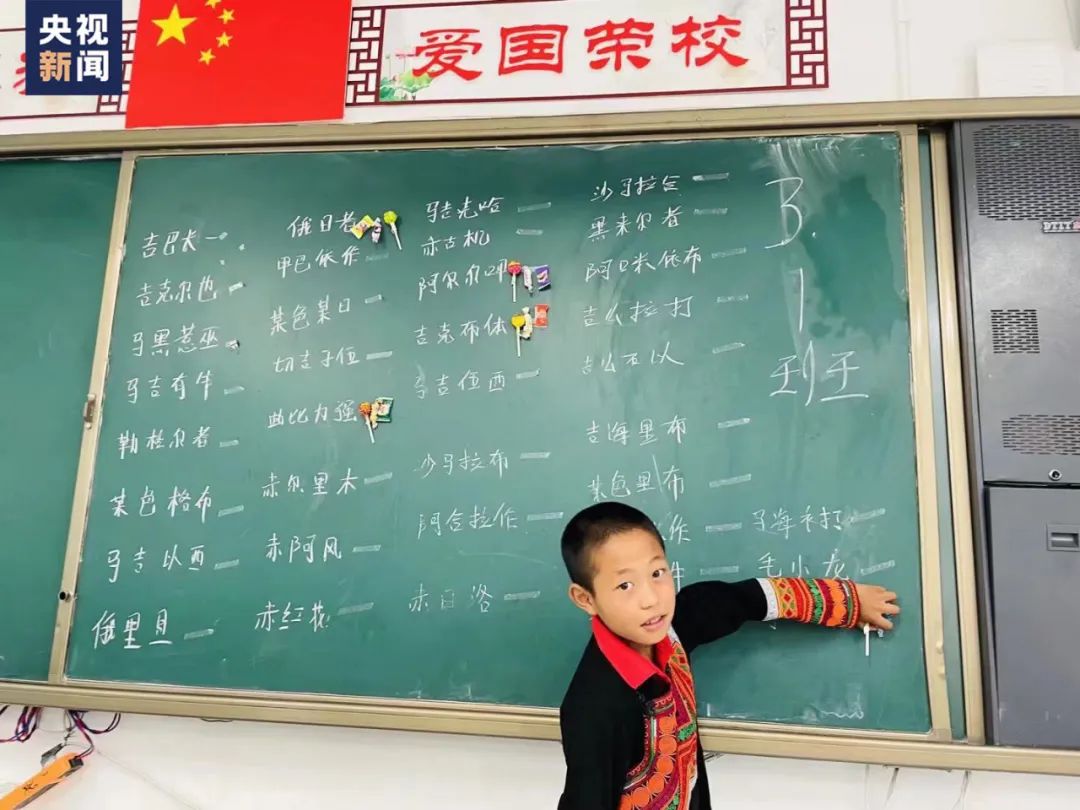 央视
新闻
爱国荣校
吉克尔色
马黑惹巫
马吉有牛
勒格尔者
某色格布
马吉以西
俄里贝
俄日者
甲巴依作
某色某日
切吉子伍
曲比力强
赤尔里木
赤阿风
赤红花
马吉克哈
赤古机
阿尔尔
吉克布体
马吉伍西
沙马拉布
阿合拉作
赤日洛
沙马拉合
黑来尔者
阿米依布
吉么拉打
吉么石以
吉海里布
某色里布
作
牛
3.
1
班王
马海补打
毛小龙